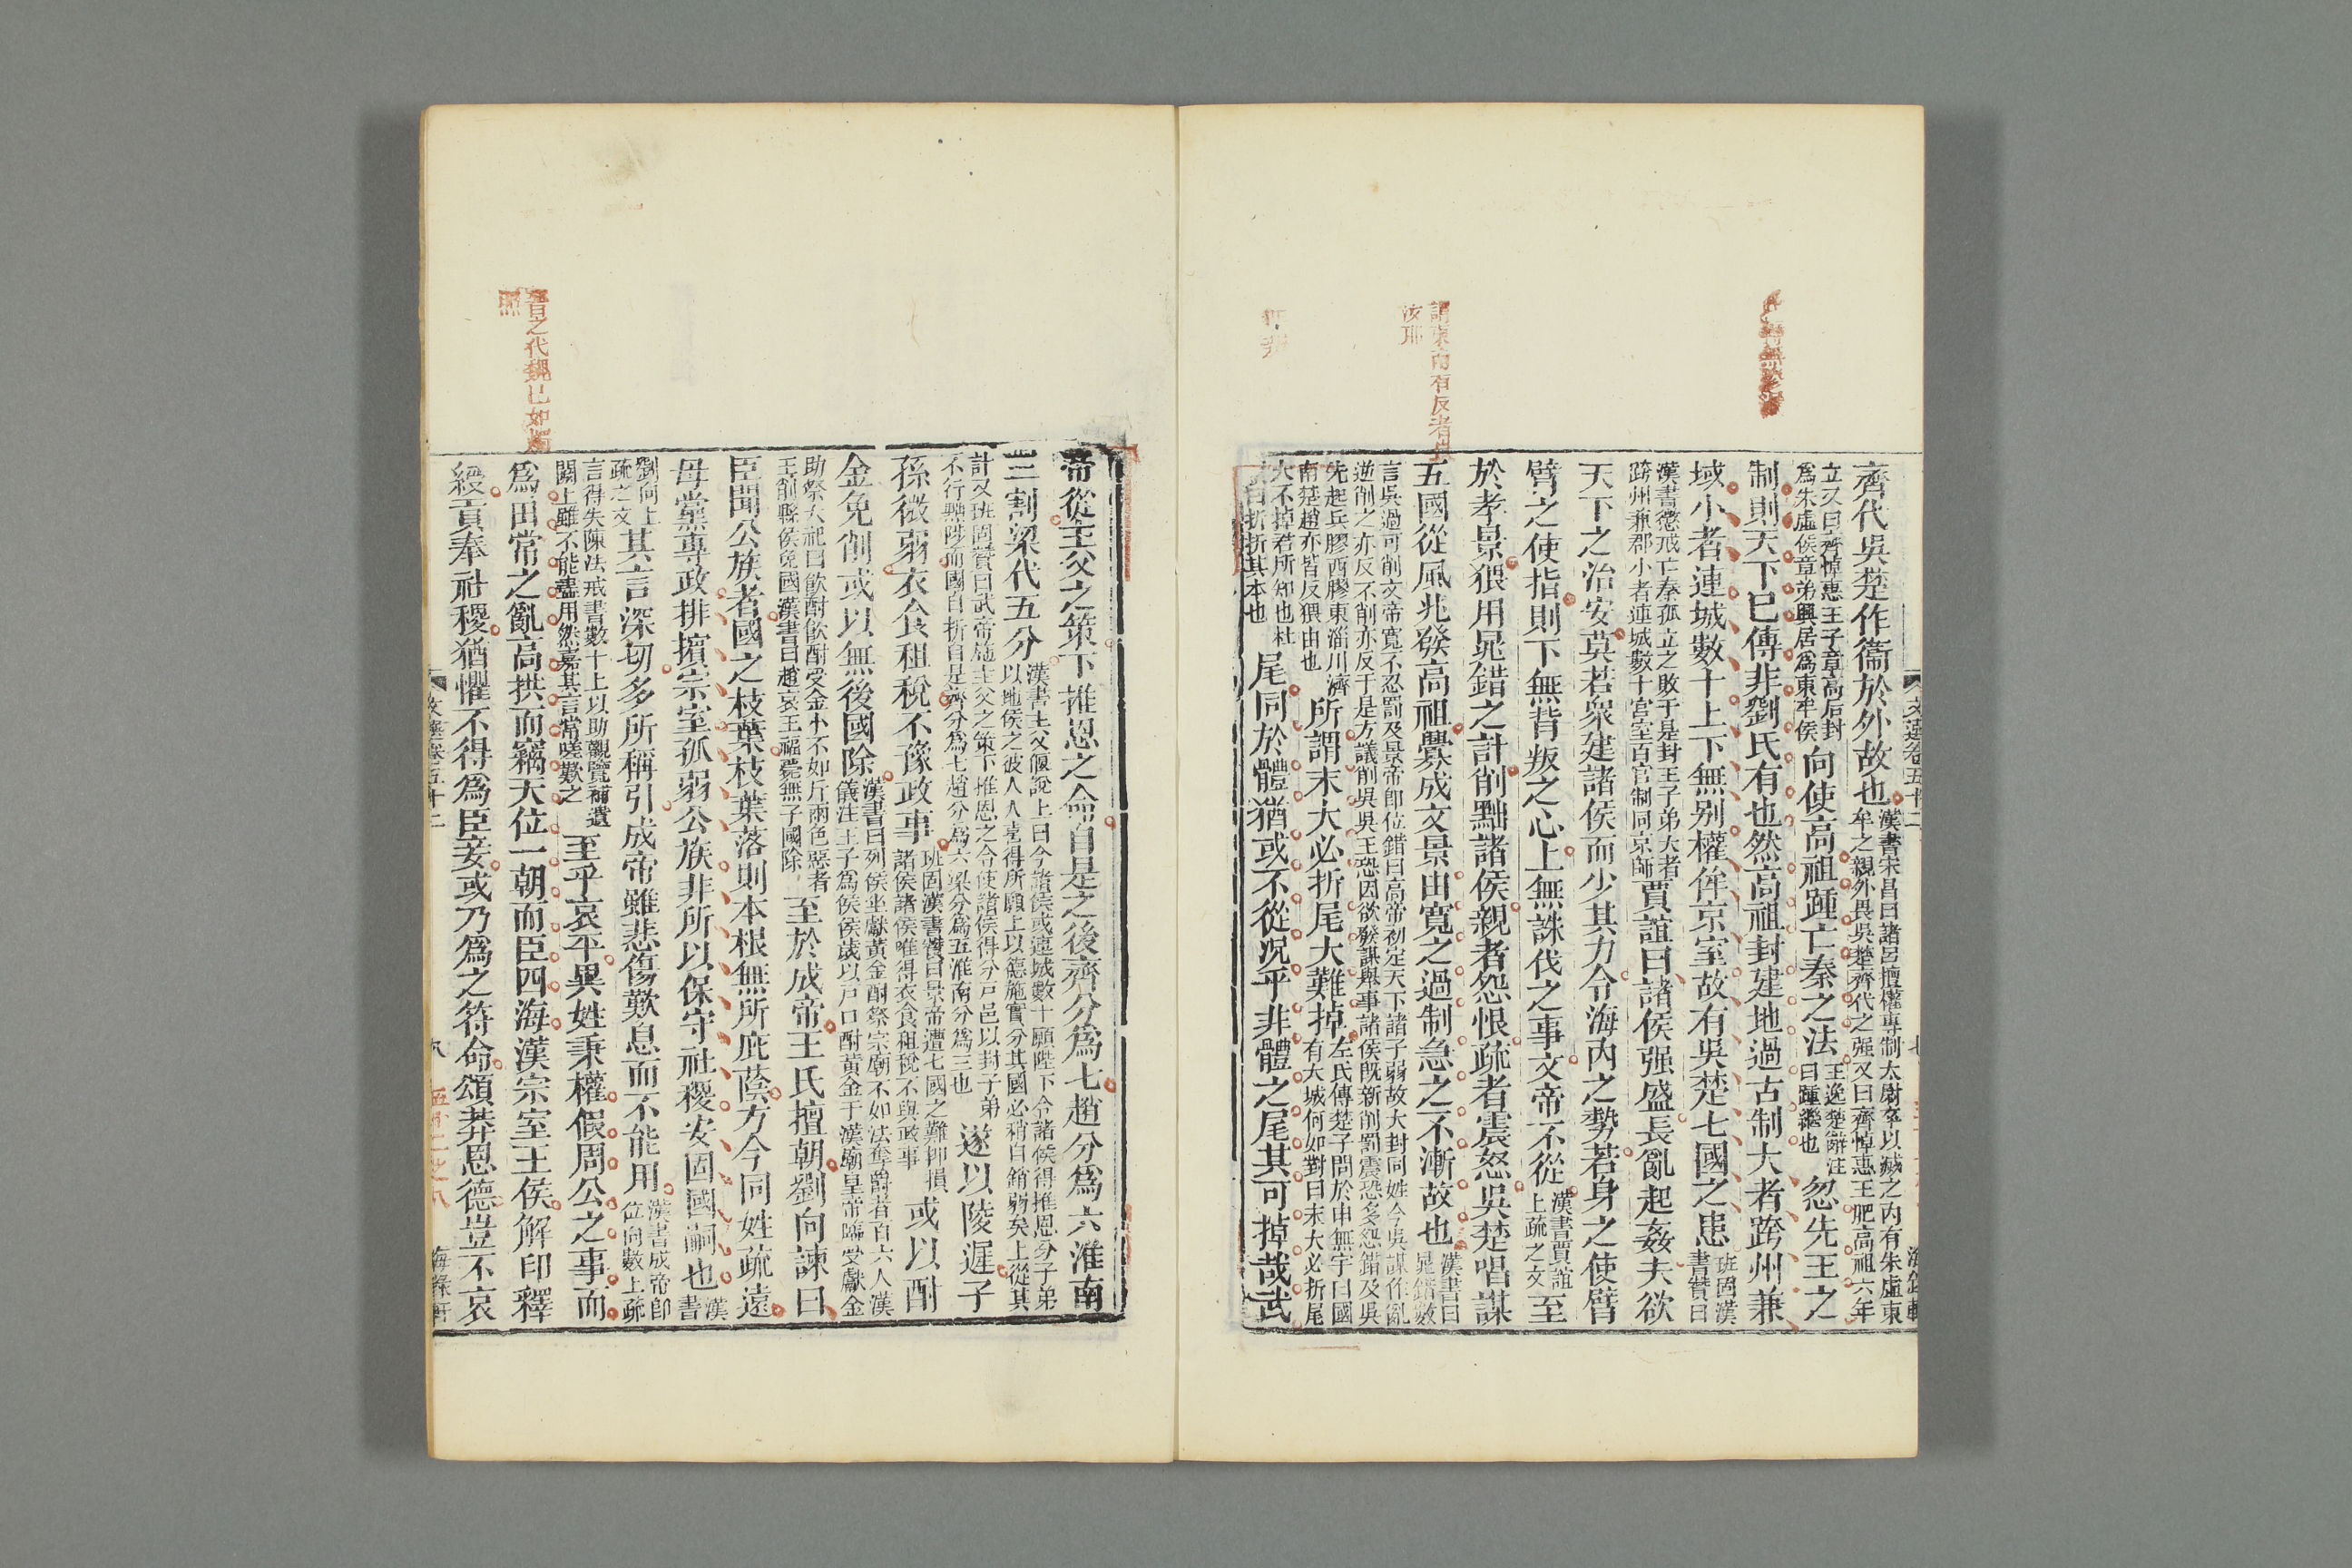 齊代吳楚作衞於外故也漢書宋昌曰諸呂擅權專制太尉卒以滅之內有朱虛東牟之親外畏吳楚齊代之强又曰齊悼惠王肥高祖六年
立又曰齊悼惠王子章高后封爲朱虛侯章弟興居爲東牟侯向使高祖踵亡秦之法王逸楚辭注曰踵繼也忽先王之
制則天下已傳非劉氏有也然高祖封建地過古制大者跨州兼
域小者連城數十上下無别權侔京室故有吳楚七國之患班固漢書贊曰
漢書懲戒亡秦孤立之敗于是封王子弟大者跨州兼郡小者連城數十宮室百官制同京師賈誼曰諸侯强盛長亂起姦夫欲
天下之治安莫若衆建諸侯而少其力令海內之勢若身之使臂
臂之使指則下無背叛之心上無誅伐之事文帝不從漢書賈誼上疏之文至
於孝景猥用晁錯之計削黜諸侯親者怨恨疏者震怒吳楚唱謀
五國從風兆發高祖釁成文景由寬之過制急之不漸故也漢書曰晁錯數
言吳過可削文帝寬不忍罰及景帝卽位錯曰高帝初定天下諸子弱故大封同姓今吳謀作亂逆削之亦反不削亦反于是方議削吳吳王恐因欲發謀舉事諸侯旣新削罰震恐多怨錯及吳
先起兵膠西膠東淄川濟南楚趙亦皆反猥由也所謂末大必折尾大難掉左氏傳楚子問於申無宇曰國有大城何如對曰末大必折尾
大不掉君所知也杜曰折折其本也尾同於體猶或不從況乎非體之尾其可掉哉武
文選卷五十二
七
海錄軒
帝從主父之策下推恩之命自是之後齊分爲七趙分爲六淮南
三割梁代五分漢書主父偃說上曰今諸侯或連城數十願陛下令諸侯得推恩分子弟以地侯之彼人人喜得所願上以德施實分其國必稍自銷弱矣上從其
計又班固贊曰武帝施主父之策下推恩之令使諸侯得分戶邑以封子弟不行黜陟而國自折自是齊分爲七趙分爲六梁分爲五淮南分爲三也遂以陵遲子
孫微弱衣食租稅不豫政事班固漢書贊曰景帝遭七國之難抑損諸侯諸侯唯得衣食租稅不與政事或以酎
金免削或以無後國除漢書曰列侯坐獻黃金酎祭宗廟不如法奪爵者百六人漢儀注王子爲侯侯歲以戶口酎黃金于漢廟皇帝臨受獻金
助祭大祀曰飮酎飮酎受金小不如斤兩色惡者王削縣侯免國漢書曰趙哀王福薨無子國除至於成帝王氏擅朝劉向諫曰
臣聞公族者國之枝葉枝葉落則本根無所庇蔭方今同姓疏遠
母黨專政排擯宗室孤弱公族非所以保守社稷安固國嗣也漢書
劉向上疏之文其言深切多所稱引成帝雖悲傷歎息而不能用漢書成帝卽位向數上疏
言得失陳法戒書數十上以助觀覽補遺闕上雖不能盡用然嘉其言常嗟歎之至乎哀平異姓秉權假周公之事而
爲田常之亂高拱而竊天位一朝而臣四海漢宗室王侯解印釋
綬貢奉社稷猶懼不得爲臣妾或乃爲之符命頌莽恩德豈不哀
文選卷五十二
八
五十二之八
海錄軒
謂東南有反者豈汝耶
晋之代魏已如燭照